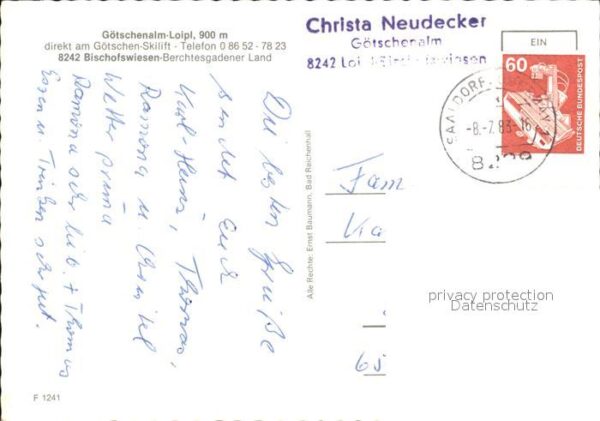 Götschenalm-Loipl, 900 m
direkt am Götschen-Skilift - Telefon 0 86 52 - 78 23
8242 Bischofswiesen-Berchtesgadener Land
Christa Neudecker
Götschenalm
8242 Loipl
EIN
60
DEUTSCHE BUNDESPOST
SAALDORF
-8.-7.83-16
Die besten Grüße
sendet Euch
Karl-Heinz, Thomas,
Ramona u. Christel
Wetter prima
Ramona sehr lieb. + Thomas
Essen u. Trinken sehr gut.
Alle Rechte: Ernst Baumann, Bad Reichenhall
Fam
Via
65
privacy protection
Datenschutz
F 1241